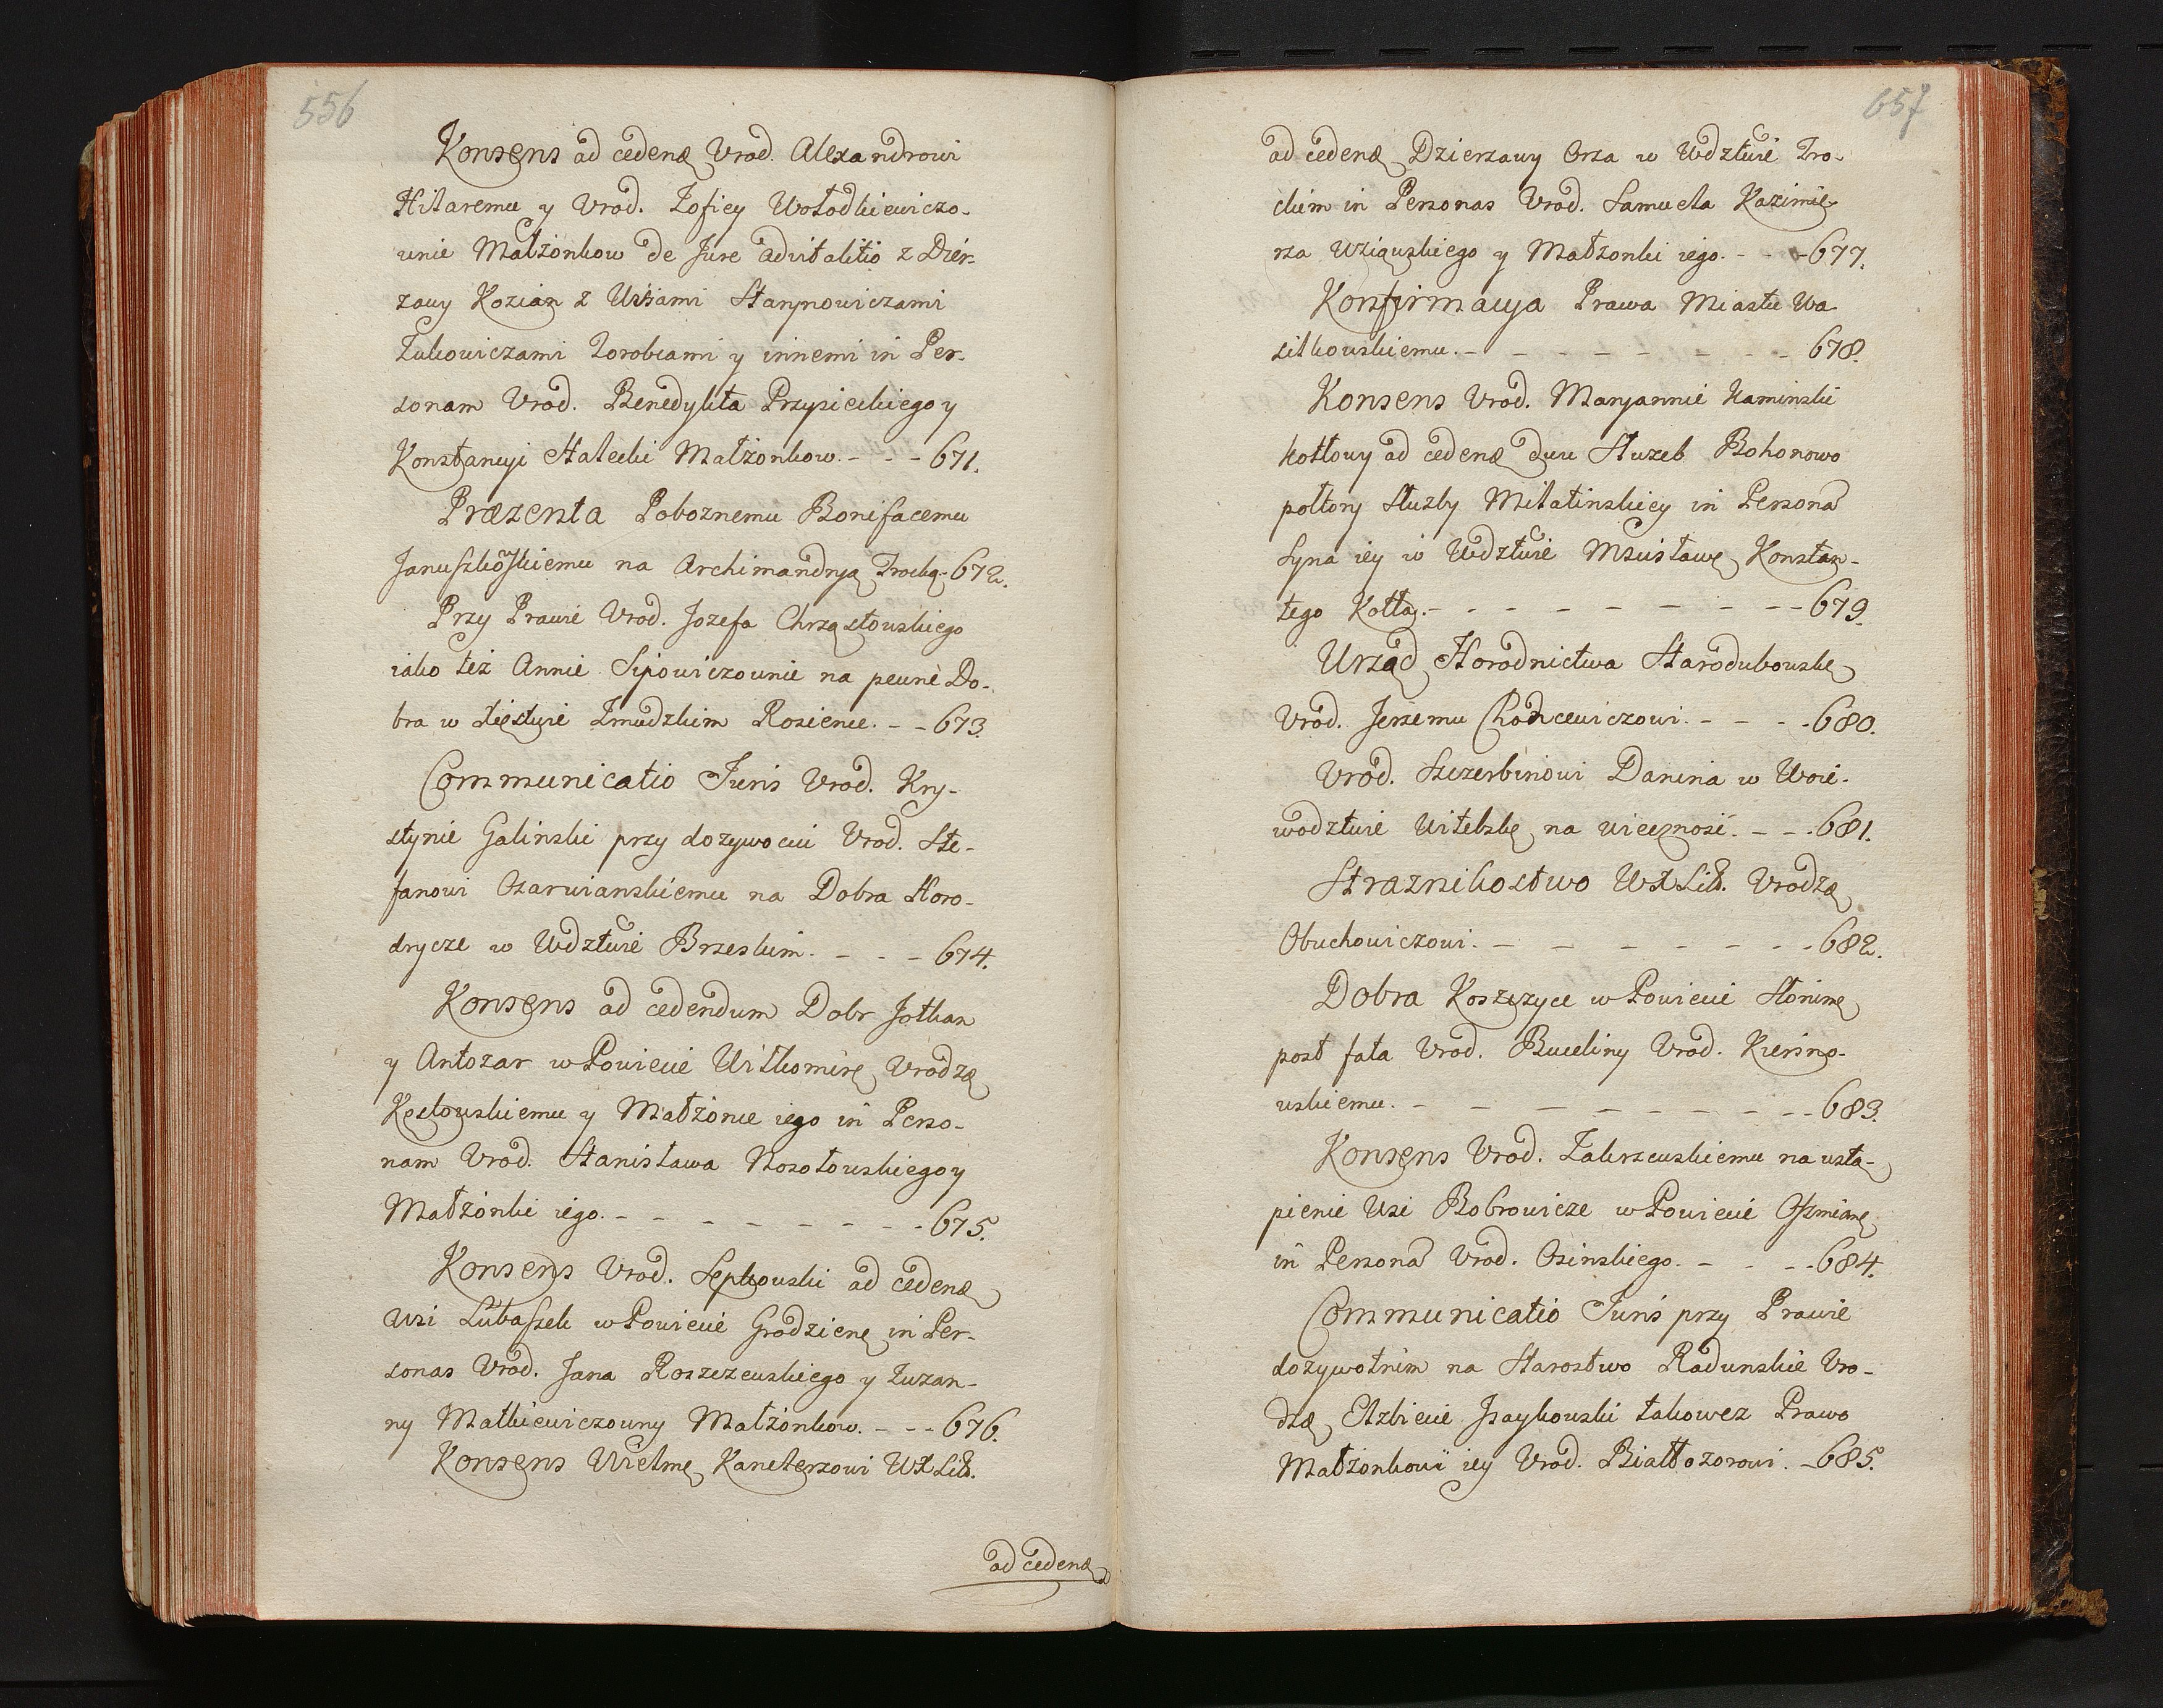 556
Konsens ad cedenđ Vrod. Alexandrowi
Hilaremu y Vrod. Zofiey Wołodkiewiczo-
wnie Małżonkow de Jure advitalitio z Dzier-
zawy Kozian z Wsiami Starynowiczami
Żukowiczami Zorobiami y innemi in Per-
sonam Vrod. Benedykta Przysieckiego y
Konstancyi Haleckiey Małżonkow. - - - 671.
Præzenta Poboznemu Bonifacemu
Januszkowskiemu na Archimandryą Trocką - 672.
Przy Prawie Vrod. Jozefa Chrząstowskiego
iako też Annie Sipowiczownie na pewne Do-
bra w Xięstwie Żmudzkim Rosience. - - 673.
Communicatio Juris Vrod. Kry-
stynie Galinski przy dozywociu Vrod. Ste-
fanowi Czarwianskiemu na Dobra Horo-
drycze w Wdztwie Brzeskim. - - - 674.
Konsens ad cedendum Dobr Jotkan
y Antozar w Powiecie Wiłkomirę Vrodzę
Kęcłowskiemu y Małżonce iego in Perso-
nam Vrod. Stanisława Kosołowskiego y
Małżonki iego. - - - - - - - - 675.
Konsens Vrod. Sępkowski ad cedenđ
Wsi Lubaszek w Powiecie Grodzienę in Per-
sonas Vrod. Jana Roszczewskiego y Zuzan-
ny Matkiewiczowny Małżonkow. - - - 676.
Konsens Wielmę Kanclerzowi WXLitt.
ad cedenđ
657
ad cedenđ Dzierzawy Orza w Wdztwie Tro-
ckim in Personas Vrod. Samuela Kazimie-
rza Uziąwskiego y Małzonki iego. - - - 677.
Konfirmacya Prawa Miastu Wa
silkowskiemu. - - - - - - - - 678.
Konsens Vrod. Maryannie Kaminski
Kotłowy ad cedenđ dwu Służeb Bohonowo
połtory Służby Milatinskiey in Personã
Syna iey w Wdztwie Mscisławę Konstan-
tego Kotła. - - - - - - - - - 679.
Urząd Horodnictwa Starodubowskę
Vrod. Jerzemu Chodzcewiczowi. - - - - 680.
Vrod. Szczerbinowi Danina w Woie-
wodztwie Witebskę na wieczność. - - - 681.
Straznikostwo WXLitt. Vrodzę
Obuchowiczowi. - - - - - - - - 682.
Dobra Koszczyce w Powiecie Słonimę
post fata Vrod. Buceliny Vrod. Kierino-
wskiemu. - - - - - - - - - 683.
Konsens Vrod. Zakrzewskiemu na ustą-
pienie Wsi Bobrowicze w Powiecie Oszmianę
in Personã Vrod. Osinskiego. - - - - 684.
Communicatio Juris przy Prawie
dozywotnim na Starostwo Radunskie Vro-
dzę Elzbiecie Jsaykowski takowez Prawo
Małżonkowi iey Vrod. Białłozorowi. - 685.